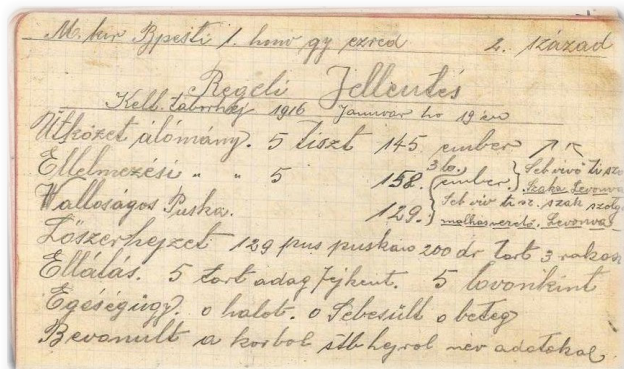 M. kir Bpesti 1. hnv gy ezred 2. század
Regeli Jellentés
Kelt. táborhej 1916 Januvar ho 19 én
Ütközet álómány. 5 tiszt 145 ember
Ellelmezési " " 5 158. 3 lo. (ember.) Seb vivő ti sz
Szaka Levonva
Walloságos Puska. 129. Seb viv ti sz. szak szolg
málhásvezető. Levonva
Lőszerhejzet 129 pus puskáio 200 dr tart 3 rakosz
Ellátás. 5 tart adag fejként. 5 lovonként
Egéségügy. 0 halot. 0 Sebesült 0 beteg
Bevanult a korbol stb hejrol nev adatokal